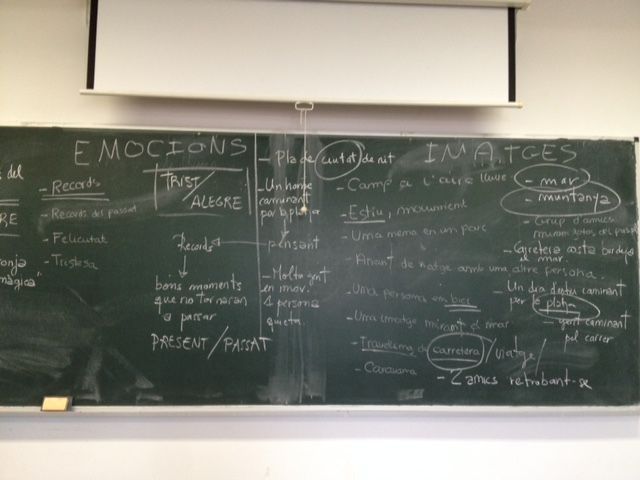 s del
RE
onja
màgica"
EMOCIONS
- Records
- Records del passat
- Felicitat
- Tristesa
TRIST/
ALEGRE
Records
bons moments
que no tornaran
a passar
PRESENT/PASSAT
- Pla de ciutat de nit
- Un home
caminant
per la platja
pensant
- Molta gent
en mov.
1 persona
quieta.
IMATGES
- Camp a l'aire lliure
- Estiu, moviment
- Una nena en un parc
- Anant de viatge amb una altre persona.
- Una persona en bici
- Una imatge mirant el mar
- Travelling de carretera / viatge /
- Caravana
- 2 amics retrobant-se
- mar
- muntanya
- Grup d'amics
mirant fotos del passat
- Carretera costa
el mar.
- Un dia d'estiu caminant
per la platja
- gent caminant
pel carrer